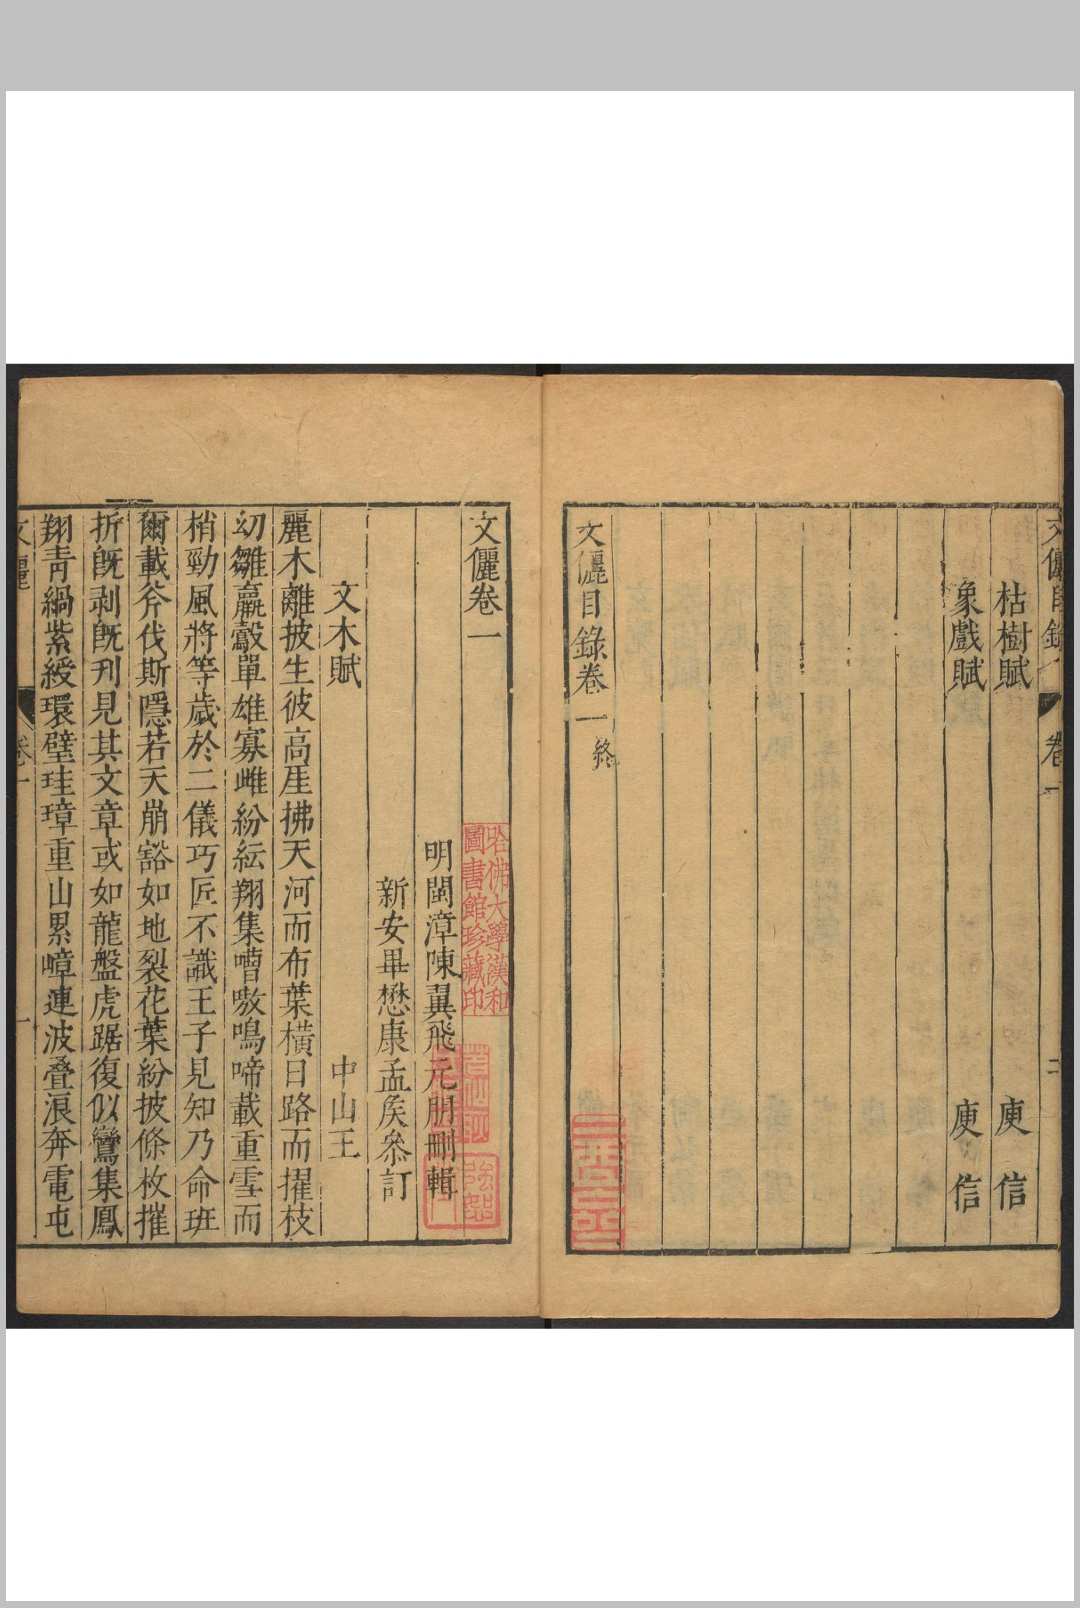 文儷目錄
卷一
二
枯樹賦 庾信
象戲賦 庾信
文儷目錄卷一終
文儷卷一
哈佛大學漢和
圖書館珍藏印
明閩漳陳翼飛元朋刪輯
新安畢懋康孟矦叅訂
文木賦 中山王
麗木離披生彼高厓拂天河而布葉橫日路而擢枝
幼雛羸鷇單雄寡雌紛紜翔集嘈嗷鳴啼載重雪而
梢勁風將等歲於二儀巧匠不識王子見知乃命班
爾載斧伐斯隱若天崩豁如地裂花葉紛披條枚摧
折旣剥旣刋見其文章或如龍盤虎踞復似鸞集鳳
翔靑緺紫綬環璧珪璋重山累嶂連波疊浪奔電屯
文儷
卷一
一